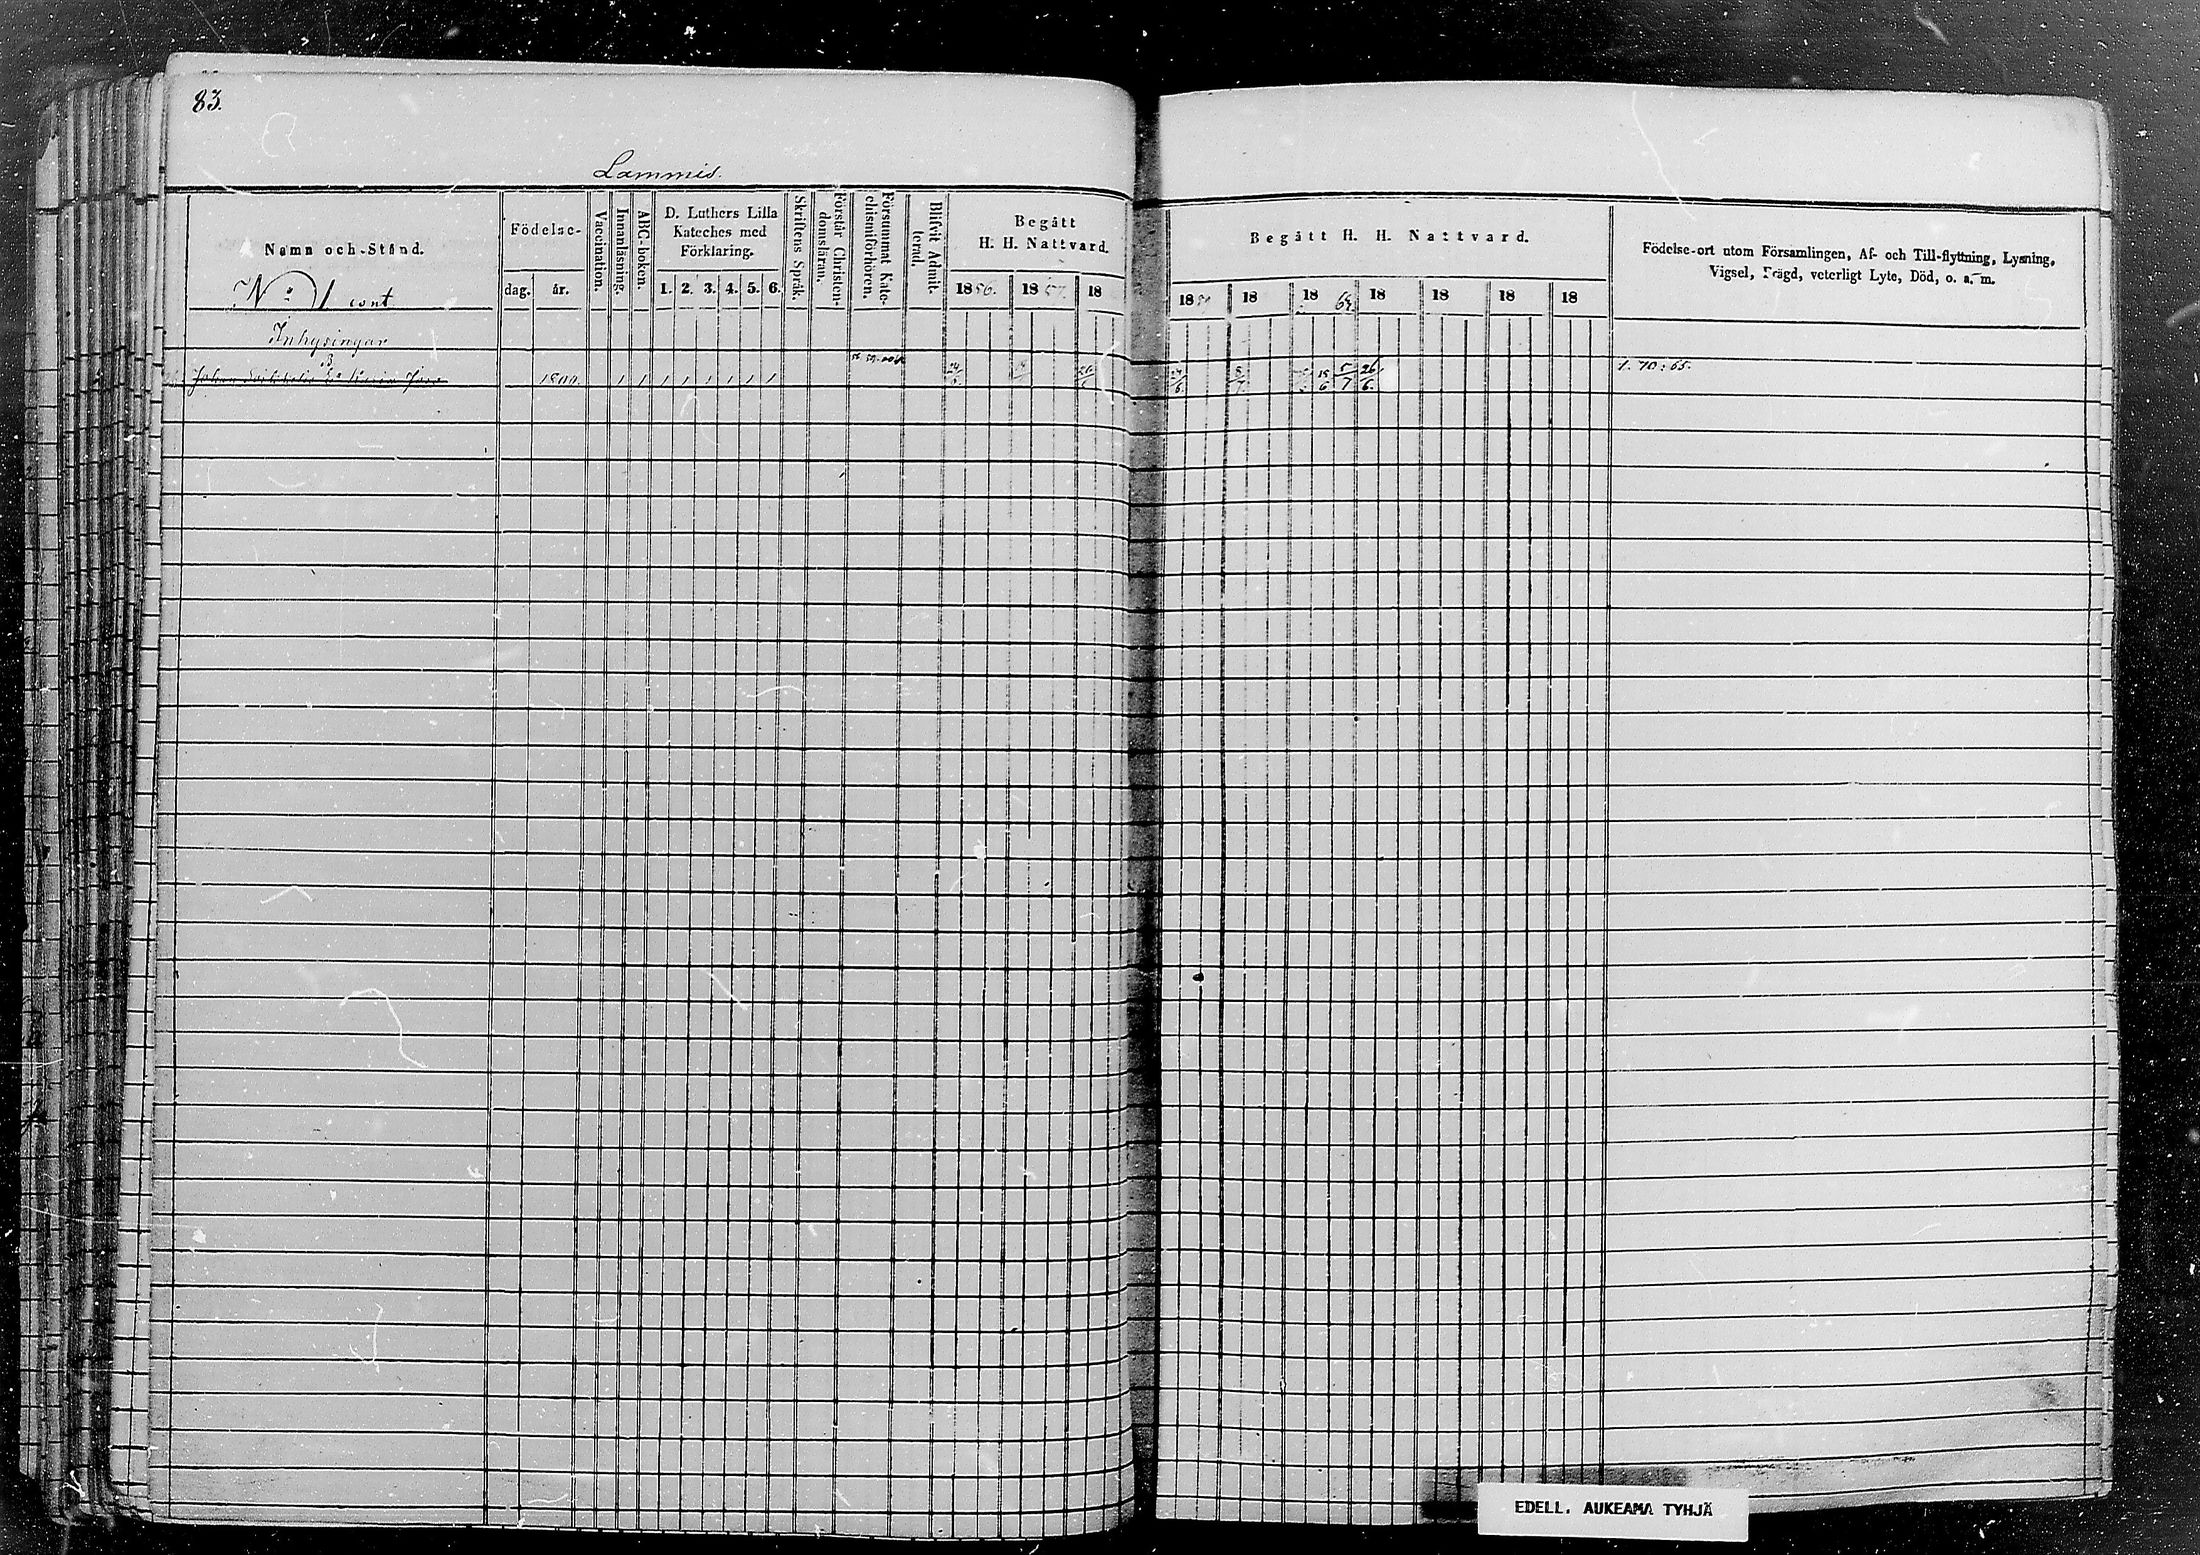 83.
Lammis.
Namn och Stånd.
Födelse-
dag. år.
Vaccination.
Innanläsning.
ABC-boken.
D. Luthers Lilla
Kateches med
Förklaring.
1. 2. 3. 4. 5. 6.
Skriftens Språk.
Förstår Christen-
domsläran.
Försummat Kate-
chismiförhören.
Blifvit Admit-
terad.
Begått
H. H. Nattvard.
1856. 1857. 18
Begått H. H. Nattvard.
18 18 18 64. 18 18 18 18
Födelse-ort utom Församlingen, Af- och Till-flyttning, Lysning,
Vigsel, Frägd, veterligt Lyte, Död, o. a. m.
No 1 cont
Inhysingar
Johan Enka Maria 1800. 1 1 1 1 1 1 1 1 24/6 18/6 5/7 26/6. 1. 70: 65.
EDELL. AUKEAMA TYHJÄ